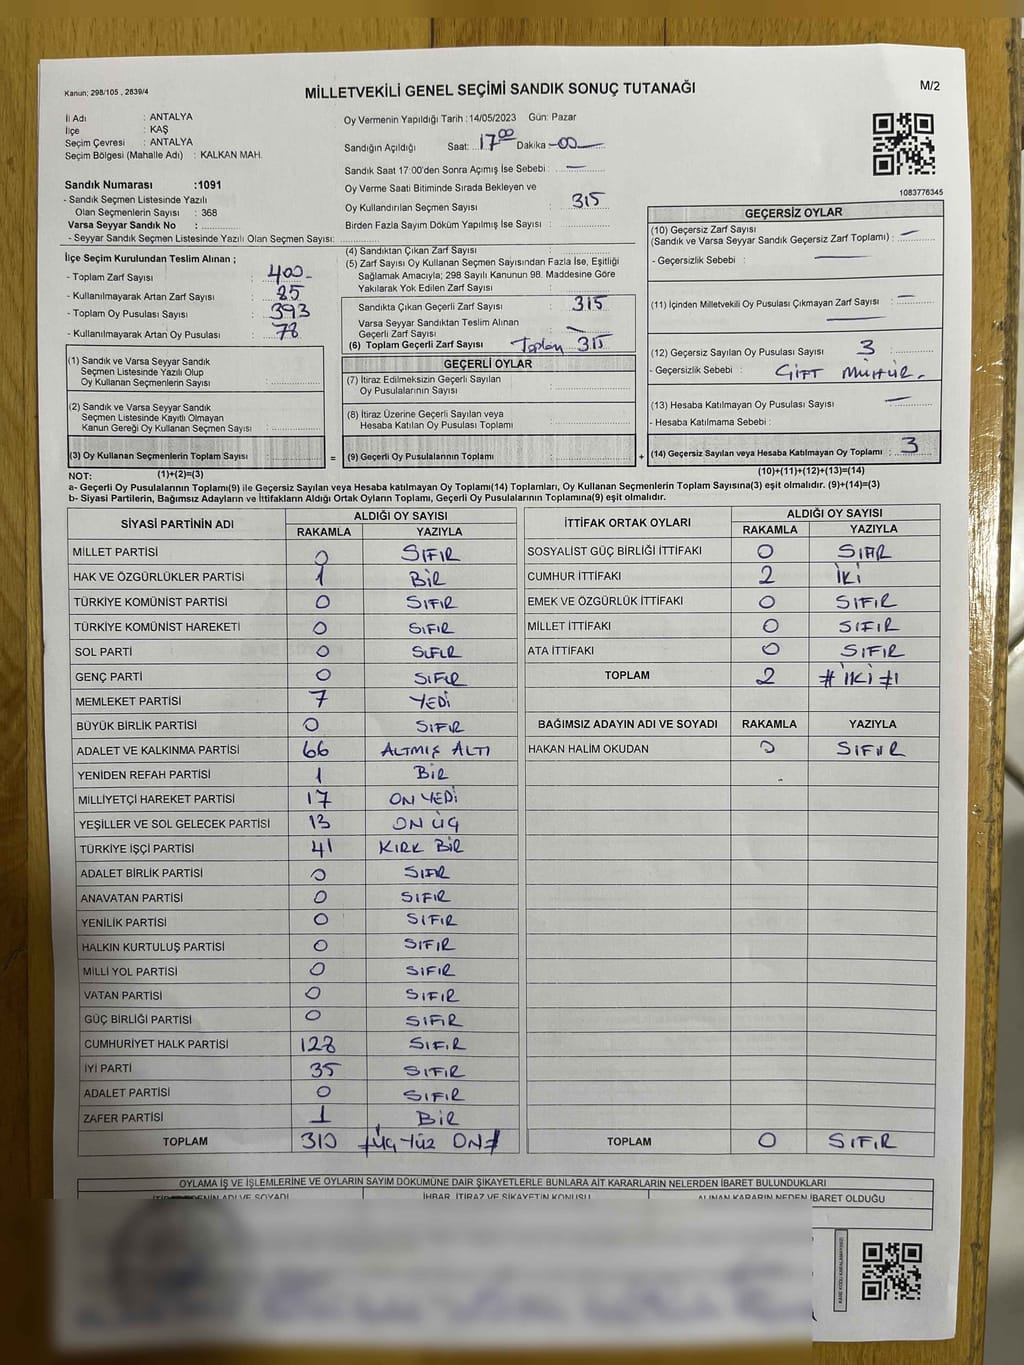 Kanun; 298/105 , 2839/4
MİLLETVEKİLİ GENEL SEÇİMİ SANDIK SONUÇ TUTANAĞI
M/2
İl Adı : ANTALYA
İlçe : KAŞ
Seçim Çevresi : ANTALYA
Seçim Bölgesi (Mahalle Adı) : KALKAN MAH.
Oy Vermenin Yapıldığı Tarih :14/05/2023 Gün: Pazar
Sandığın Açıldığı Saat: 17 00 Dakika -00-
Sandık Saat 17:00'den Sonra Açımış İse Sebebi : -
Oy Verme Saati Bitiminde Sırada Bekleyen ve
Oy Kullandırılan Seçmen Sayısı : 315
Birden Fazla Sayım Döküm Yapılmış İse Sayısı :
1083776345
Sandık Numarası :1091
- Sandık Seçmen Listesinde Yazılı
Olan Seçmenlerin Sayısı : 368
Varsa Seyyar Sandık No :
- Seyyar Sandık Seçmen Listesinde Yazılı Olan Seçmen Sayısı:
İlçe Seçim Kurulundan Teslim Alınan ;
- Toplam Zarf Sayısı : 400-
- Kullanılmayarak Artan Zarf Sayısı : 85
- Toplam Oy Pusulası Sayısı : 393
- Kullanılmayarak Artan Oy Pusulası : 78
(1) Sandık ve Varsa Seyyar Sandık
Seçmen Listesinde Yazılı Olup
Oy Kullanan Seçmenlerin Sayısı :
(2) Sandık ve Varsa Seyyar Sandık
Seçmen Listesinde Kayıtlı Olmayan
Kanun Gereği Oy Kullanan Seçmen Sayısı :
(3) Oy Kullanan Seçmenlerin Toplam Sayısı :
(1)+(2)=(3)
(4) Sandıktan Çıkan Zarf Sayısı :
(5) Zarf Sayısı Oy Kullanan Seçmen Sayısından Fazla İse, Eşitliği
Sağlamak Amacıyla; 298 Sayılı Kanunun 98. Maddesine Göre
Yakılarak Yok Edilen Zarf Sayısı :
Sandıkta Çıkan Geçerli Zarf Sayısı : 315
Varsa Seyyar Sandıktan Teslim Alınan
Geçerli Zarf Sayısı : -
(6) Toplam Geçerli Zarf Sayısı Toplam 315
GEÇERLİ OYLAR
(7) İtiraz Edilmeksizin Geçerli Sayılan
Oy Pusulasının Sayısı :
(8) İtiraz Üzerine Geçerli Sayılan veya
Hesaba Katılan Oy Pusulası Toplamı :
= (9) Geçerli Oy Pusulalarının Toplamı :
GEÇERSİZ OYLAR
(10) Geçersiz Zarf Sayısı
(Sandık ve Varsa Seyyar Sandık Geçersiz Zarf Toplamı) : -
- Geçersizlik Sebebi : -
(11) İçinden Milletvekili Oy Pusulası Çıkmayan Zarf Sayısı : -
(12) Geçersiz Sayılan Oy Pusulası Sayısı : 3
- Geçersizlik Sebebi : ÇİFT MÜHÜR.
(13) Hesaba Katılmayan Oy Pusulası Sayısı : -
- Hesaba Katılmama Sebebi :
+ (14) Geçersiz Sayılan veya Hesaba Katılmayan Oy Toplamı : 3
(10)+(11)+(12)+(13)=(14)
NOT:
a- Geçerli Oy Pusulalarının Toplamı(9) ile Geçersiz Sayılan veya Hesaba katılmayan Oy Toplamı(14) Toplamları, Oy Kullanan Seçmenlerin Toplam Sayısına(3) eşit olmalıdır. (9)+(14)=(3)
b- Siyasi Partilerin, Bağımsız Adayların ve İttifakların Aldığı Ortak Oyların Toplamı, Geçerli Oy Pusulalarının Toplamına(9) eşit olmalıdır.
SİYASİ PARTİNİN ADI ALDIĞI OY SAYISI
RAKAMLA YAZIYLA
MİLLET PARTİSİ 0 SIFIR
HAK VE ÖZGÜRLÜKLER PARTİSİ 1 BİR
TÜRKİYE KOMÜNİST PARTİSİ 0 SIFIR
TÜRKİYE KOMÜNİST HAREKETİ 0 SIFIR
SOL PARTİ 0 SIFIR
GENÇ PARTİ 0 SIFIR
MEMLEKET PARTİSİ 7 YEDİ
BÜYÜK BİRLİK PARTİSİ 0 SIFIR
ADALET VE KALKINMA PARTİSİ 66 ALTMIŞ ALTI
YENİDEN REFAH PARTİSİ 1 BİR
MİLLİYETÇİ HAREKET PARTİSİ 17 ON YEDİ
YEŞİLLER VE SOL GELECEK PARTİSİ 13 ON ÜÇ
TÜRKİYE İŞÇİ PARTİSİ 41 KIRK BİR
ADALET BİRLİK PARTİSİ 0 SIFIR
ANAVATAN PARTİSİ 0 SIFIR
YENİLİK PARTİSİ 0 SIFIR
HALKIN KURTULUŞ PARTİSİ 0 SIFIR
MİLLİ YOL PARTİSİ 0 SIFIR
VATAN PARTİSİ 0 SIFIR
GÜÇ BİRLİĞİ PARTİSİ 0 SIFIR
CUMHURİYET HALK PARTİSİ 128 SIFIR
İYİ PARTİ 35 SIFIR
ADALET PARTİSİ 0 SIFIR
ZAFER PARTİSİ 1 BİR
TOPLAM 310 #ÜÇ YÜZ ON#
İTTİFAK ORTAK OYLARI ALDIĞI OY SAYISI
RAKAMLA YAZIYLA
SOSYALİST GÜÇ BİRLİĞİ İTTİFAKI 0 SIFIR
CUMHUR İTTİFAKI 2 İKİ
EMEK VE ÖZGÜRLÜK İTTİFAKI 0 SIFIR
MİLLET İTTİFAKI 0 SIFIR
ATA İTTİFAKI 0 SIFIR
TOPLAM 2 #İKİ#
BAĞIMSIZ ADAYIN ADI VE SOYADI RAKAMLA YAZIYLA
HAKAN HALİM OKUDAN 0 SIFIR
TOPLAM 0 SIFIR
OYLAMA İŞ VE İŞLEMLERİNE VE OYLARIN SAYIM DÖKÜMÜNE DAİR ŞİKAYETLERLE BUNLARA AİT KARARLARIN NELERDEN İBARET BULUNDUKLARI
İTİRAZ EDENİN ADI VE SOYADI İHBAR, İTİRAZ VE ŞİKAYETİN KONUSU ALINAN KARARIN NEDEN İBARET OLDUĞU